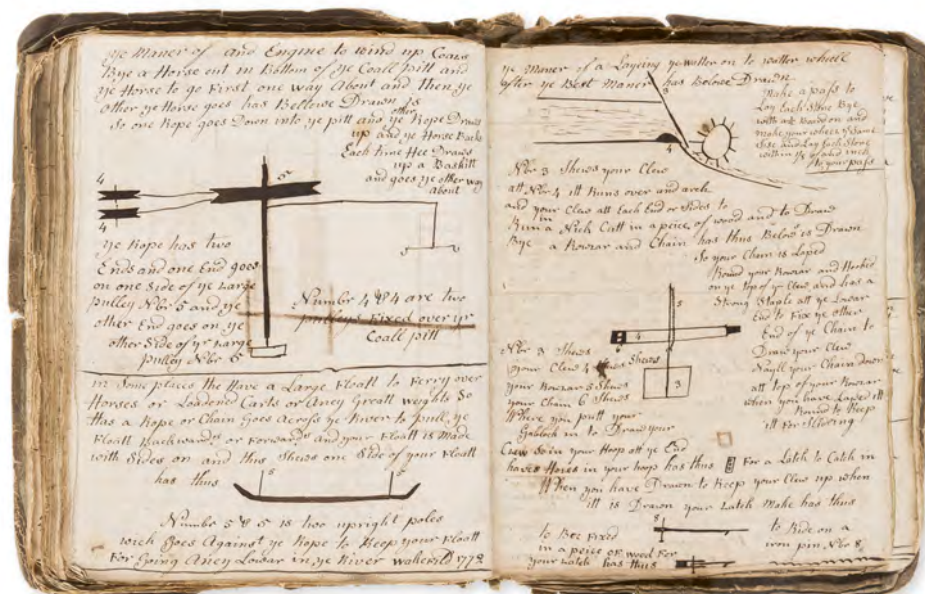 ye Maner of and Engine to wind up Coals
Bye a Horse out in Bottom of ye Coall pitt and
ye Horse to go First one way About and then ye
other ye Horse goes has Bellowe Drawn is
So one Rope goes Down into ye pitt and ye other Rope Draws
up and ye Horse Backs
Each time Hee Draws
up a Baskitt
and goes ye other way
about
4
4
ye Rope has two
Ends and one End goes
on one Side of ye Large
pulley Nbr 5 and ye
other End goes on ye
other Side of yr Large
pulley Nbr 5
Number 4 & 4 are two
pulleys Fixed over yr
Coall pitt
in Some places the Have a Large Floatt to Ferry over
Horses or Loadened Carts or Aney Greatt weights So
Has a Rope or Chain Goes Across ye River to pull ye
Floatt Backwards or Forwards and your Floatt is Made
with Sides on and this Shews one Side of your Floatt
has thus
5
5
Number 5 & 5 is two upright poles
wich Goes Against ye Rope to Keep your Floatt
For Going Aney Lowar in ye River wakefeild 1772
ye Maner of a Laying ye watter on to watter wheell
after ye Best Maner has Belowe Drawn
Make a pass to
Lay Each Stone Bye
and
make your wheel ye Same
Sise and Lay Each Stone
within of and inch
to your pass
3
4
Nbr 3 Shews your Clew
att Nbr 4 itt Runs over and arch
and your Clew att Each End or Sides to
Run in a Nick Cutt in a peice of wood and to Draw
Bye a Rowar and Chain has thus Below is Drawn
So your Chain is Laped
Round your Rowar and Hooked
on ye top of ye Clew and has a
Strong Staple att ye Lowar
End to Fix ye other
End of ye Chain to
Draw your Clew
Nayll your Chain down
att top of your Rowar
when you have Laped itt
Round to Keep
itt For
5
6
4
3
Nbr 3 Shews
your Clew 4 Shews
your Rowar 5 Shews
your Chain 6 Shews
Where you putt your
Gablock in to Draw your
Clew So in your Hoop att ye End
haves Hores in your hoop has thus For a Latch to Catch in
When you have Drawn to Keep your Clew up when
itt is Drawn your Latch Make has thus
8
to Bee Fixed
in a peice of wood For
your Latch has thus
to Ride on a
iron pin Nbr 8